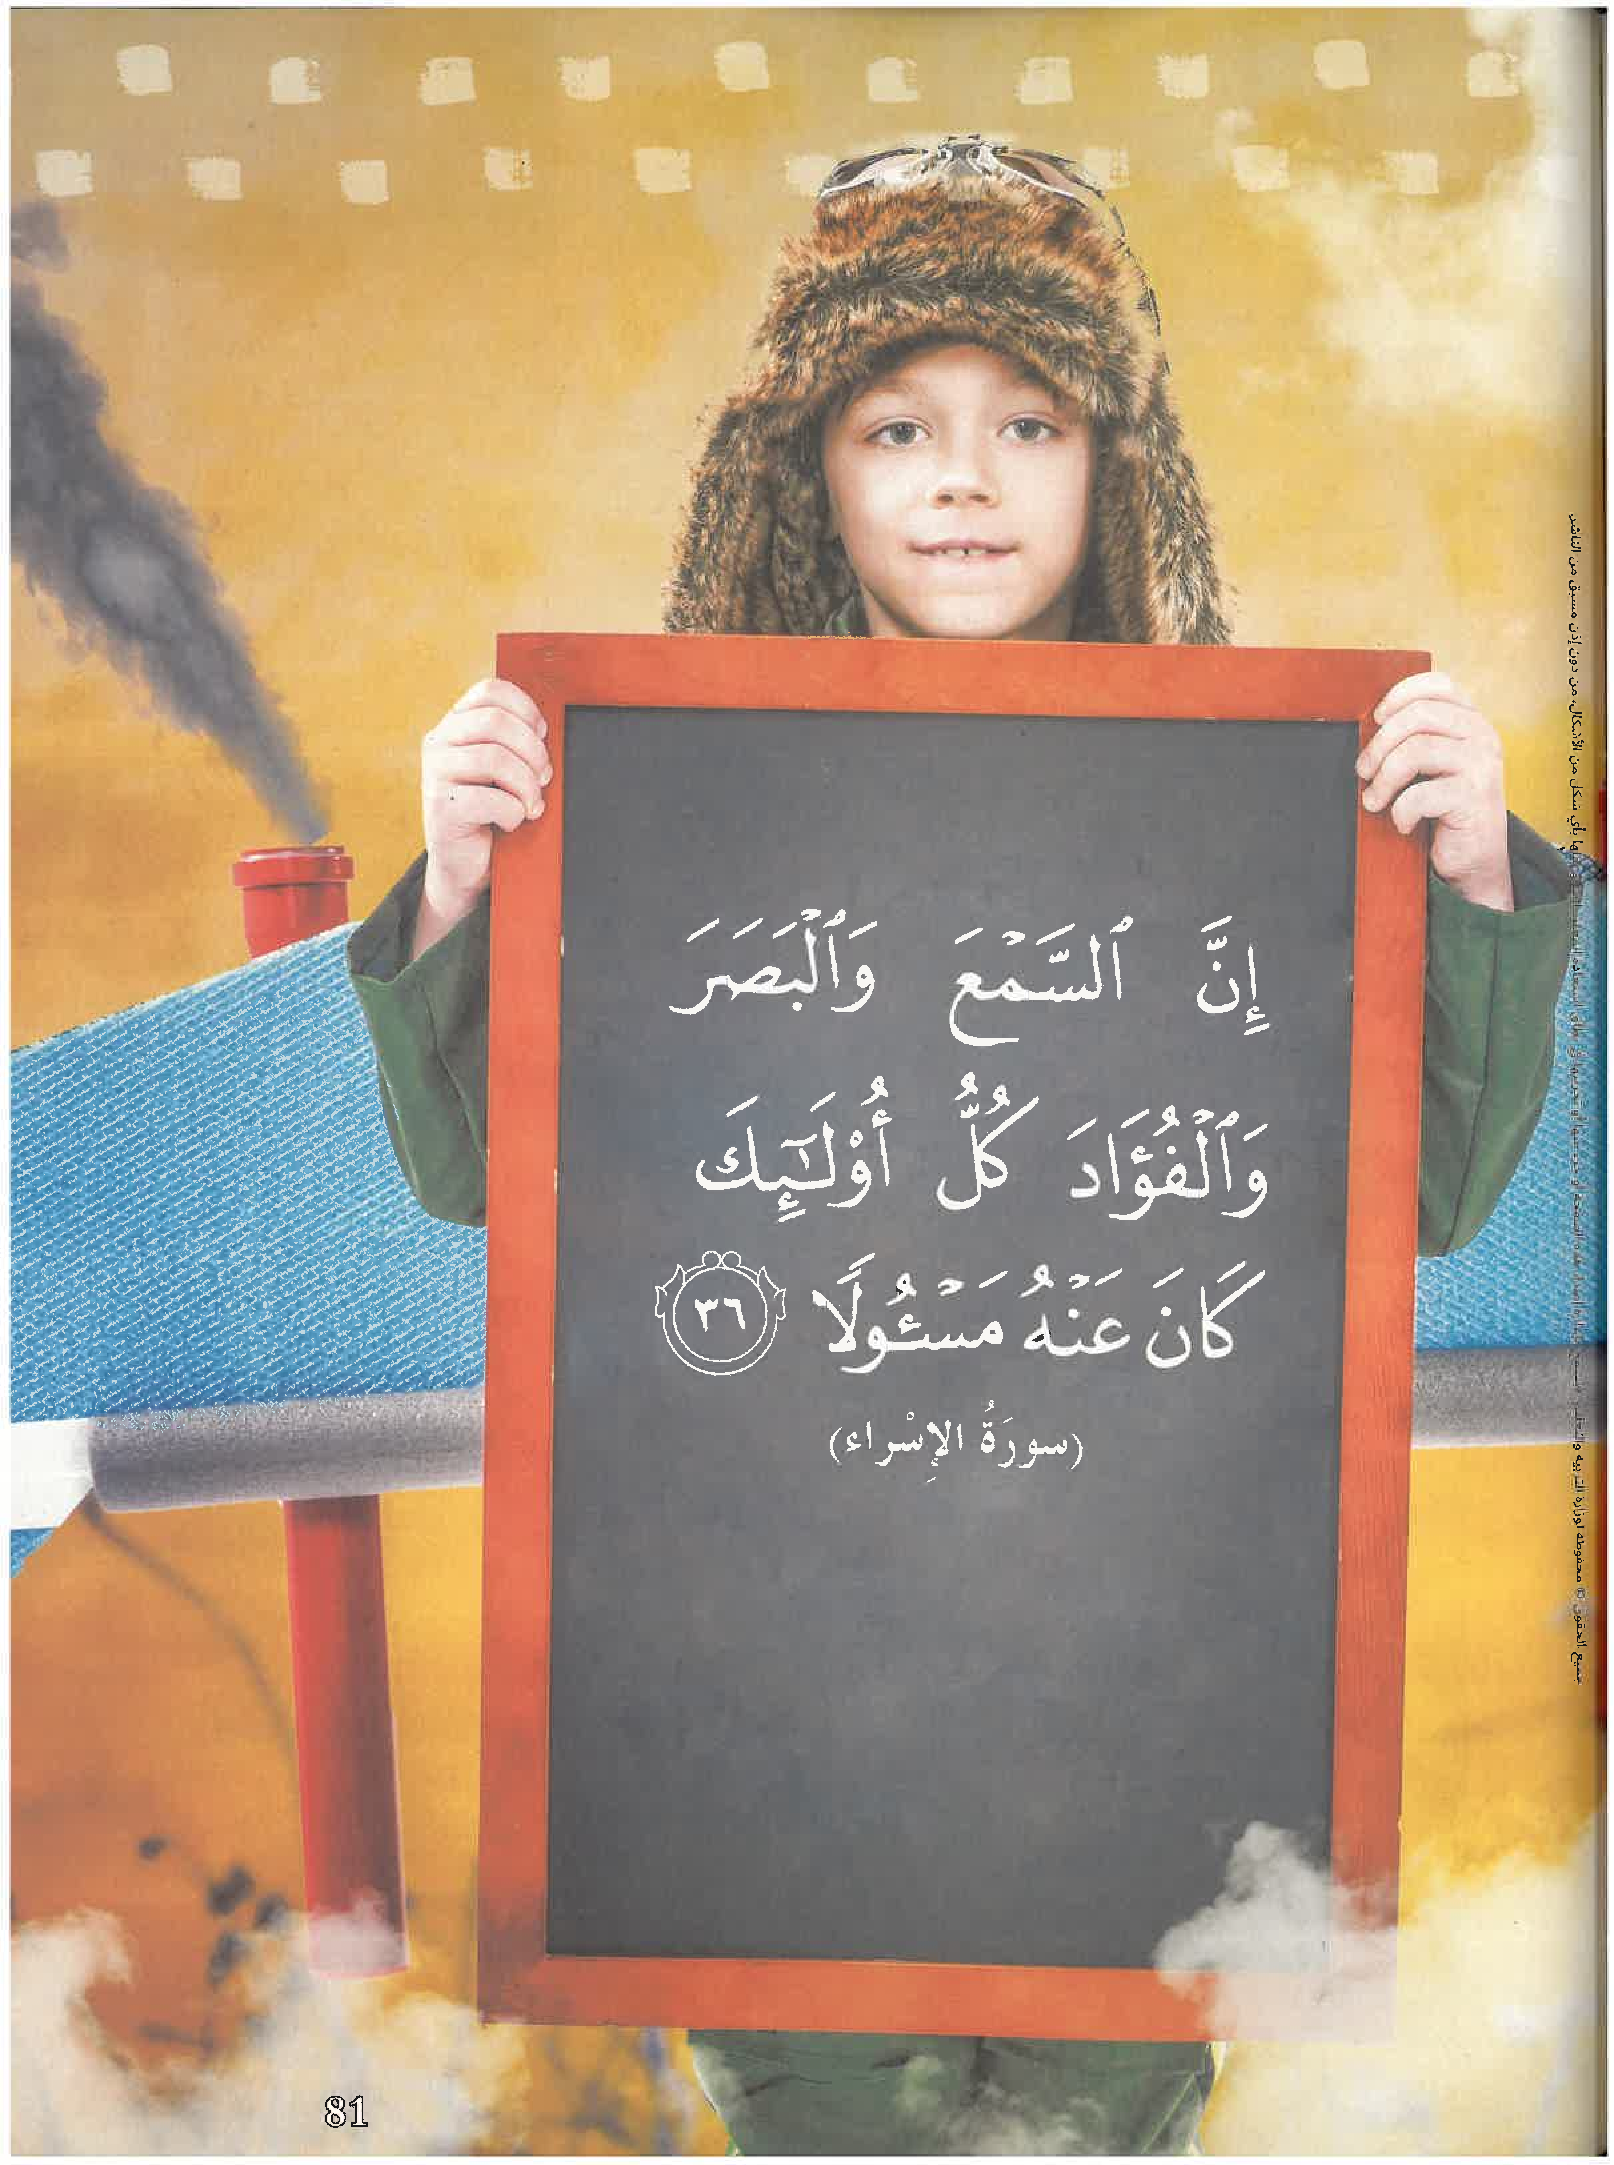 إِنَّ ٱلسَّمْعَ وَٱلْبَصَرَ
وَٱلْفُؤَادَ كُلُّ أُوْلَٰٓئِكَ
كَانَ عَنْهُ مَسْـُٔولًا ٣٦
(سورَةُ الإِسْراء)
81
جميع الحقوق © محفوظة لوزارة التربية والتعليم
بأي شكل من الأشكال، من دون إذن مسبق من الناشر.